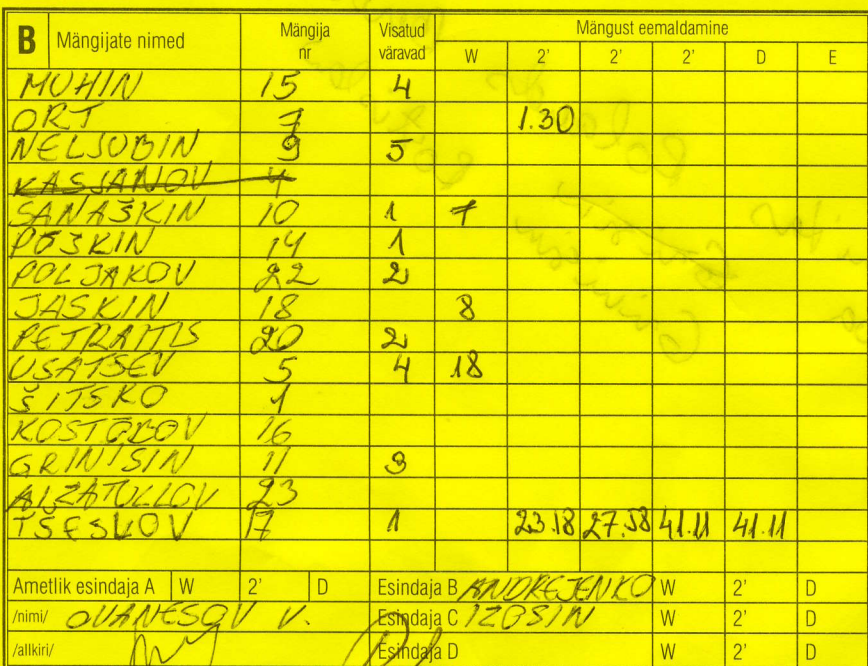 B Mängijate nimed Mängija nr Visatud väravad Mängust eemaldamine
W 2' 2' 2' D E
MUHIN 15 4
ORT 7 1.30
NELJUBIN 9 5
KASJANOV 4
SANAŠKIN 10 1 7
PÕŠKIN 14 1
POLJAKOV 22 2
JASKIN 18 8
PETRAITIS 20 2
USATSEV 5 4 18
ŠITSKO 1
KOSTÕLOV 16
GRINTSIN 11 3
AIZATULLOV 23
TŠESKOV 17 1 23.18 27.58 41.11 41.11
Ametlik esindaja A W 2' D Esindaja B ANDREJENKO W 2' D
/nimi/ OVANESOV V. Esindaja C IZOSIN W 2' D
/allkiri/ Esindaja D W 2' D